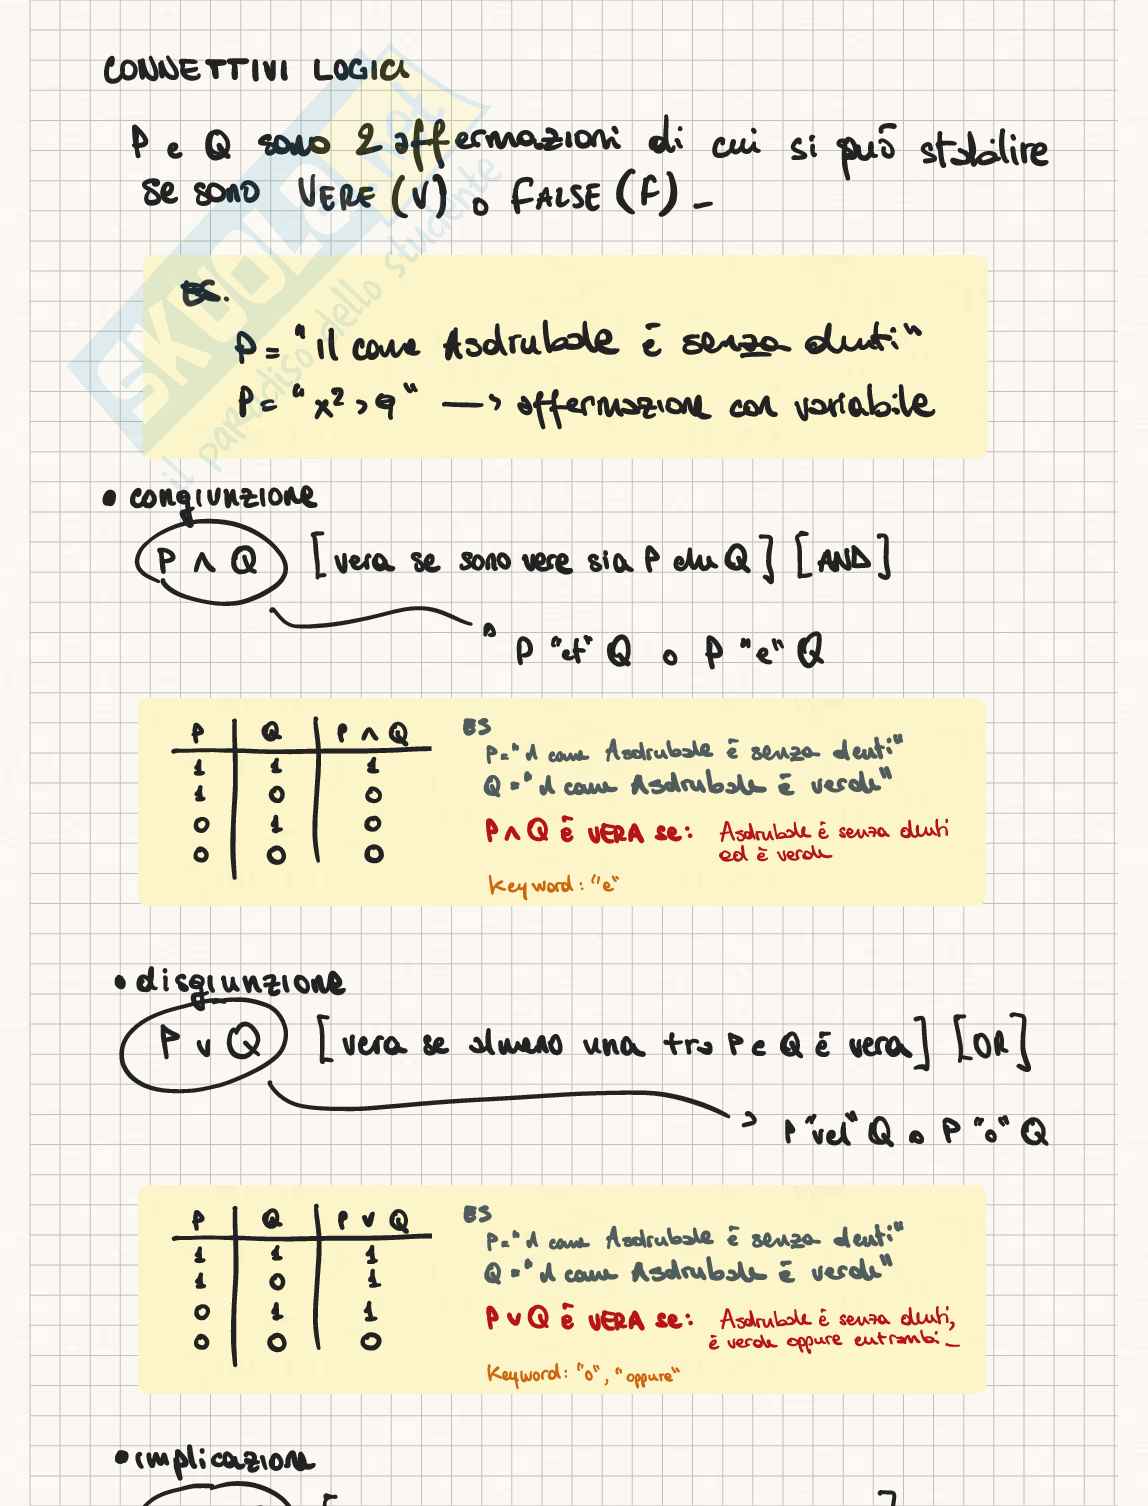 CONNETTIVI LOGICI
P e Q sono 2 affermazioni di cui si può stabilire
se sono VERE (V) o FALSE (F) _
ES.
P = "Il cane Asdrubale è senza denti"
P = "x² > 9" → affermazione con variabile
• congiunzione
P ∧ Q [vera se sono vere sia P che Q] [AND]
P "et" Q o P "e" Q
P Q P ∧ Q
1 1 1
1 0 0
0 1 0
0 0 0
ES
P = "il cane Asdrubale è senza denti"
Q = "il cane Asdrubale è verde"
P ∧ Q è VERA se: Asdrubale è senza denti
ed è verde
Keyword: "e"
• disgiunzione
P ∨ Q [vera se almeno una tra P e Q è vera] [OR]
P "vel" Q o P "o" Q
P Q P ∨ Q
1 1 1
1 0 1
0 1 1
0 0 0
ES
P = "il cane Asdrubale è senza denti"
Q = "il cane Asdrubale è verde"
P ∨ Q è VERA se: Asdrubale è senza denti,
è verde oppure entrambi _
Keyword: "o", "oppure"
• implicazione
SKUOLA.net
il paradiso dello studente